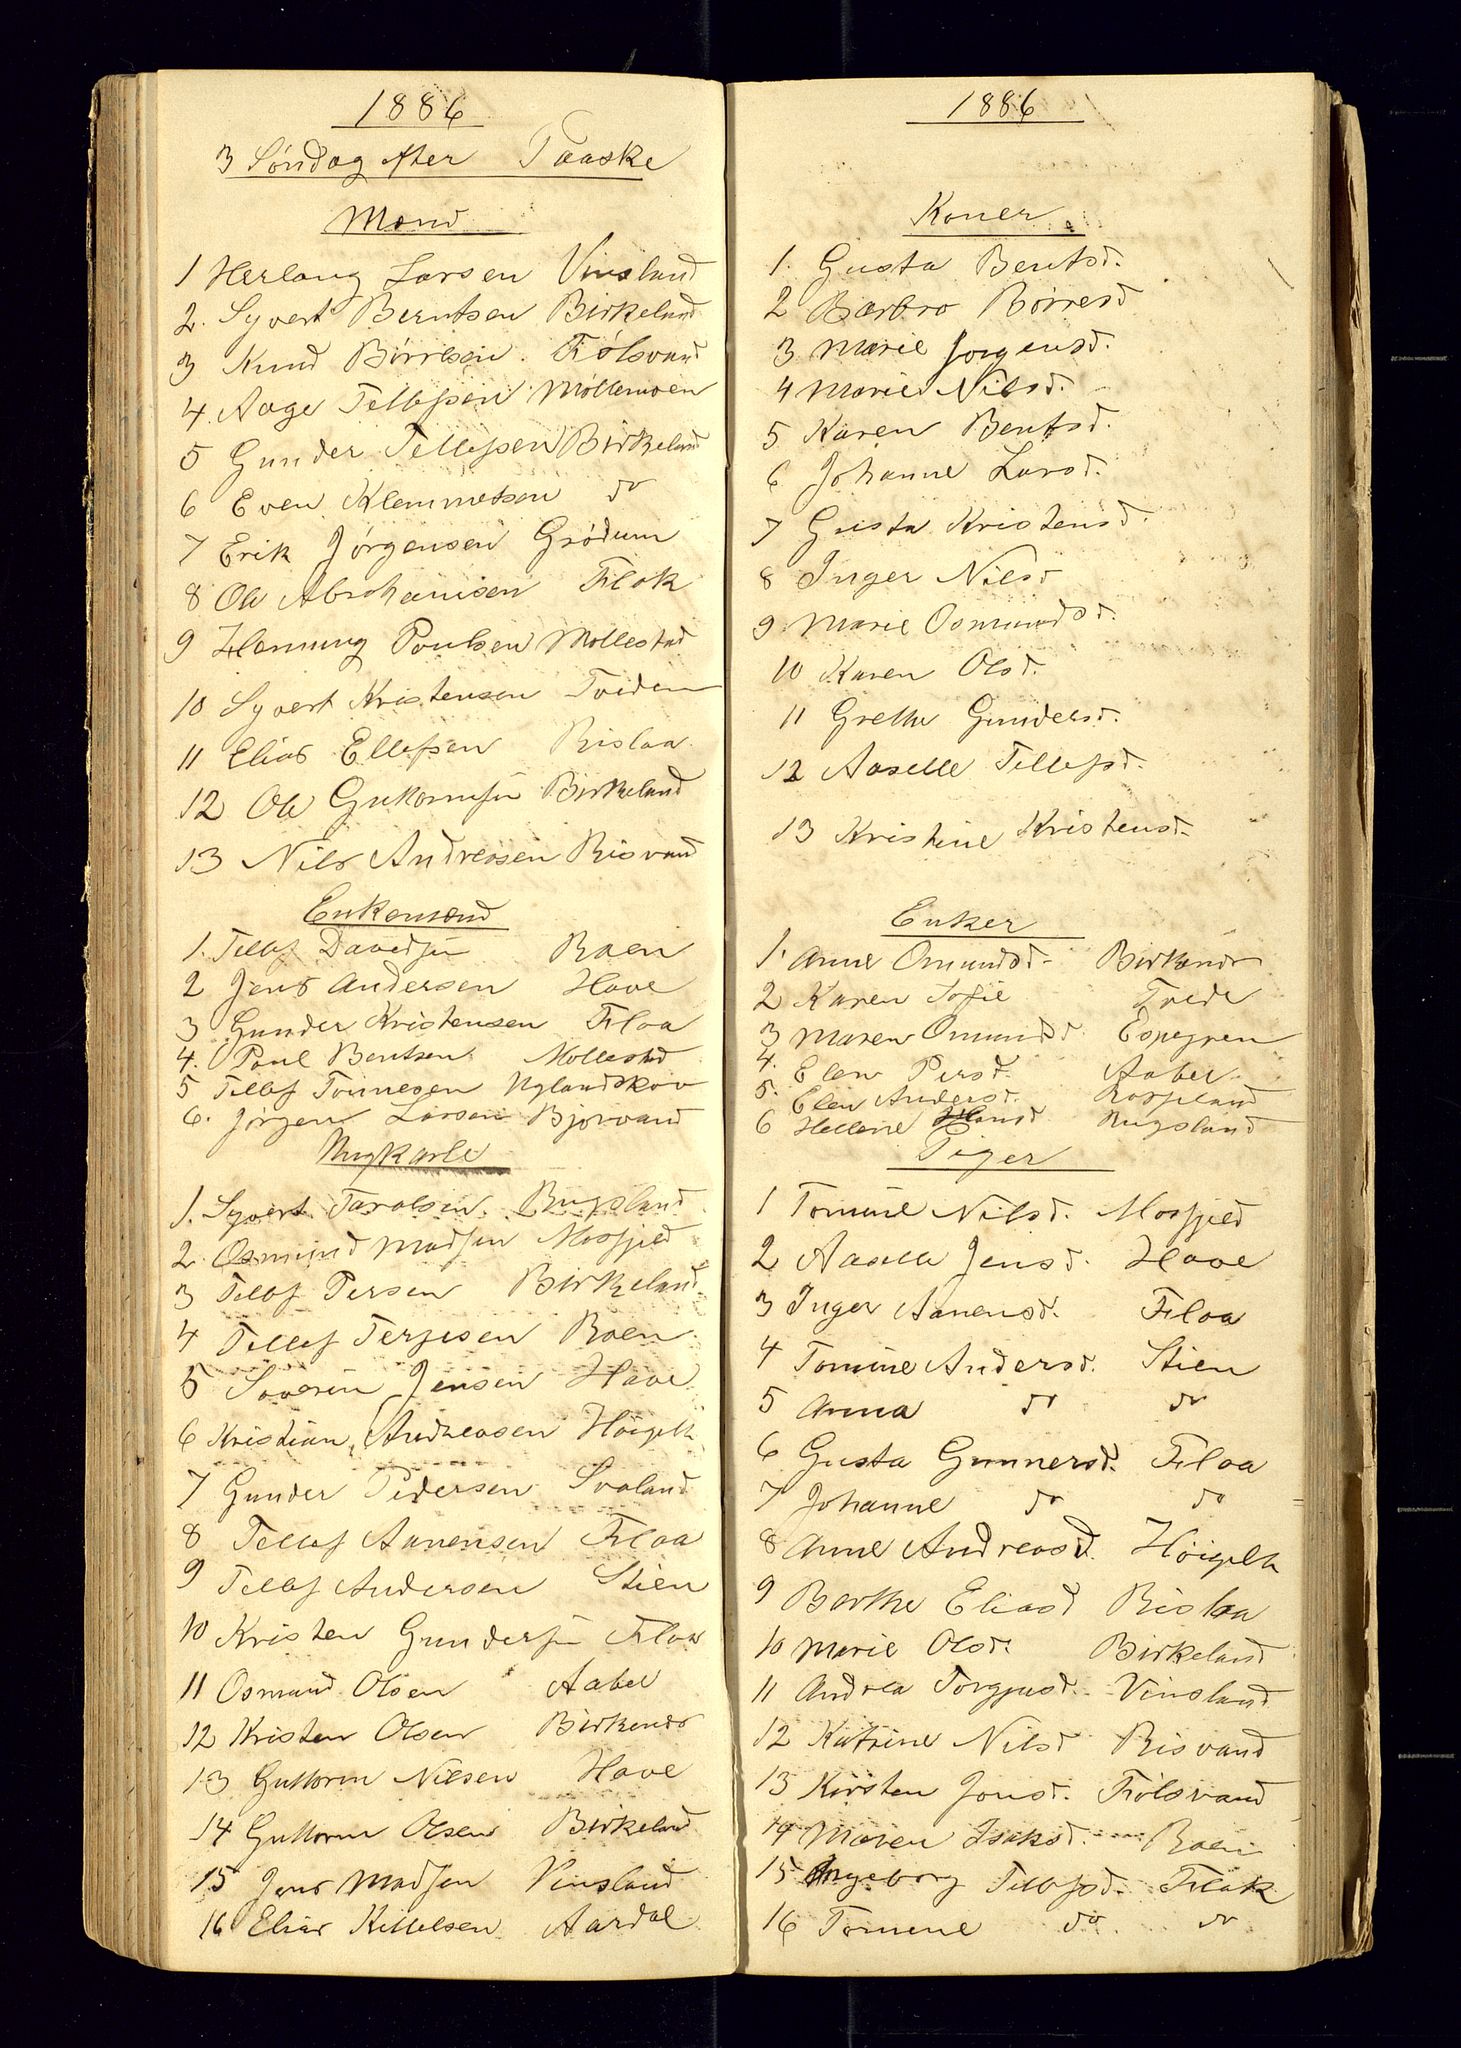 1886
3 Søndag efter Paaske
Mænd
1 Herlaug Larsen Vinsland
2. Syvert Berntsen Birkeland
3 Knud Børresen. Fidsvand
4. Aage Tellefsen Møllemoen
5 Gunder Tellefsen Birkeland
6 Even Klemmetsen do
7 Erik Jørgensen Grødum
8 Ole Abrahamsen Flak
9 Henning Poulsen Mollestad
10 Syvert Kristensen Tveden
11 Elias Ellefsen Rislaa
12 Ole Guttormsen Birkeland
13 Nils Andreasen Risvand
Enkemænd
1. Tellef Davidsen Boen
2 Jens Andersen Have
3 Gunder Kristensen Flaa
4. Poul Bentsen Mollestad
5 Tellef Tønnesen Uglandskov
6. Jørgen Larsen Bjorvand
Ungkarle
1. Syvert Taralsen. Bugsland
2 Osmund Madsen Mosfjeld
3 Tellef Persen Birkeland
4 Tellef Terjesen Boen
5 Søveren Jensen Have
6 Kristian Andreasen Høigilt
7 Gunder Pedersen Svaland
8 Tellef Aanensen Flaa
9 Tellef Andersen Stien
10 Kristen Gundersen Flaa
11 Osmund Olsen Aabel
12 Kristen Olsen Birkenes
13 Guttorm Nilsen Have
14 Guttorm Olsen Birkeland
15 Jens Madsen Vinsland
16 Elias Kittelsen Aardal
1886
Koner
1. Gusta Bentsd.
2 Barbro Børresd
3 Marie Jørgensd.
4 Marie Nilsd.
5 Karen Bentsd.
6 Johanne Larsd.
7 Gusta Kristensd.
8 Inger Nilsd
9 Marie Osmundsd.
10 Karen Olsd.
11 Grethe Gundersd.
12 Aaselle Tellefsd.
13 Kristine Kristensd.
Enker
1. Anne Omundsd. Birkenes
2 Karen Sofie Tvede
3 Maren Omundsd Espegren
4. Elen Persd. Aabel
5. Elen Andersd. Rosseland
6 Hellene Hansd Bugsland
Piger
1 Tomine Nilsd. Mosfjeld
2 Aaselle Jensd. Have
3 Inger Aanensd. Flaa
4 Tomine Andersd. Stien
5 Anna do do
6 Gusta Gunnersd. Flaa
7 Johanne do do
8 Anne Andreasd. Høigilt
9 Berthe Eliasd Rislaa
10 Marie Olsd. Birkeland
11 Andrea Torgjusd. Vinsland
12 Katrine Nilsd Risvand
13 Kirsten Jonsd. Fidsvand
14 Maren Isaksd. Boen
15 Ingeborg Tellefsd. Flak
16 Tomine do do